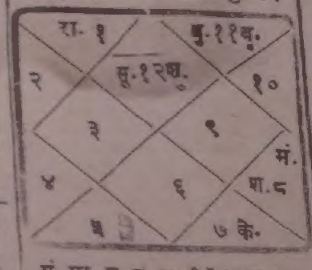 रा. १
बु.११बृ.
सू.१२शु.
२
१०
३
९
मं.
४
६
श.८
५
७ के.